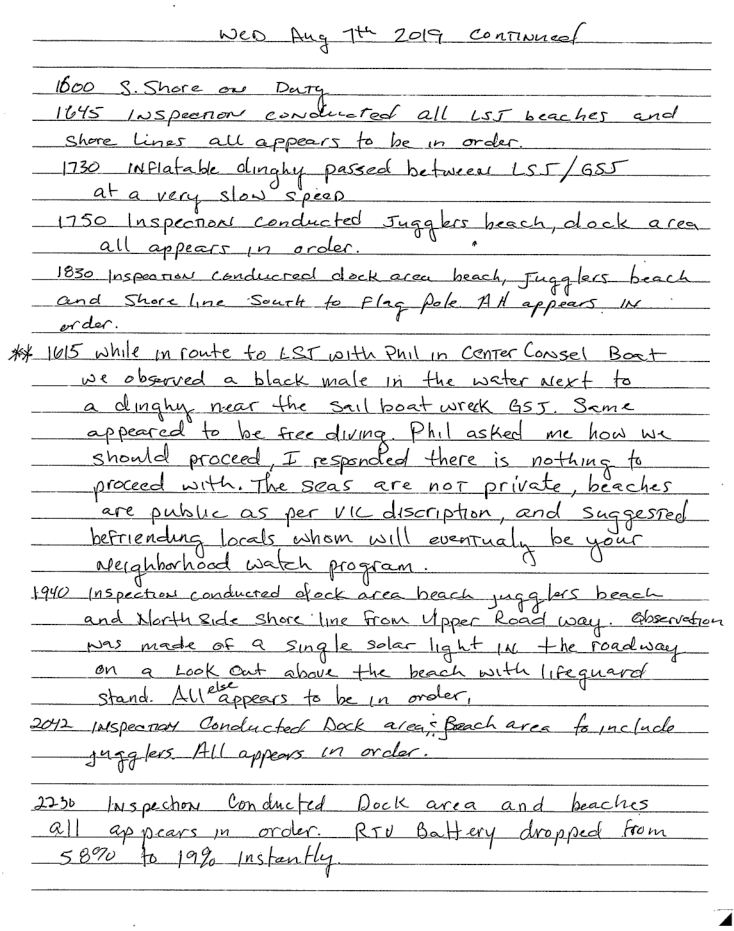 Wed Aug 7th 2019 Continued
1600 S. Shore on Duty
1645 Inspection conducted all LSJ beaches and
Shore Lines all appears to be in order.
1730 Inflatable dinghy passed between LSJ/GSJ
at a very slow speed
1750 Inspection conducted Jugglers beach, dock area
all appears in order.
1830 Inspection conducted dock area beach, Jugglers beach
and Shore line South to Flag Pole All appears in
order.
** 1615 while in route to LSJ with Phil in Center Consel Boat
we observed a black male in the water next to
a dinghy near the sail boat wreck GSJ. Same
appeared to be free diving. Phil asked me how we
should proceed, I responded there is nothing to
proceed with. The seas are not private, beaches
are public as per VIC discription, and suggested
befriending locals whom will eventualy be your
Neighborhood watch program.
1940 Inspection conducted dock area beach jugglers beach
and North Side shore line from Upper Road way. Observation
was made of a single solar light in the roadway
on a Look Out above the beach with lifeguard
stand. All else appears to be in order,
2042 Inspection Conducted Dock area, Beach area to include
jugglers. All appears in order.
2230 Inspection Conducted Dock area and beaches
all appears in order. RTV Battery dropped from
58% to 19% instantly.